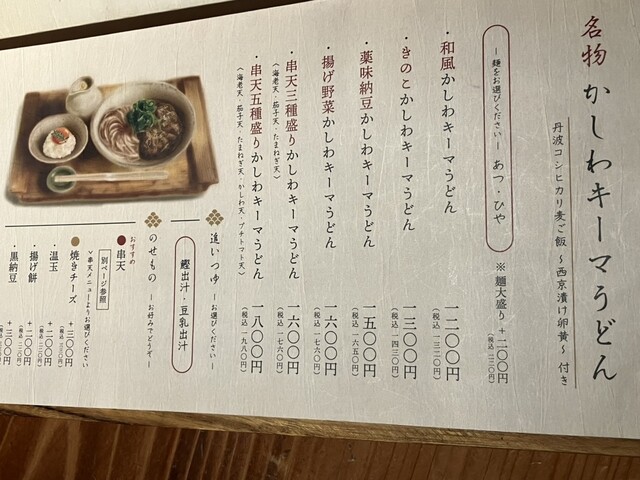 名物 かしわキーマうどん
丹波コシヒカリ麦ご飯 〜西京漬け卵黄〜 付き
―麺をお選びください― あつ・ひや
※麺大盛り +二〇〇円
（税込 二二〇円）
・和風かしわキーマうどん 一二〇〇円
（税込 一三二〇円）
・きのこかしわキーマうどん 一三〇〇円
（税込 一四三〇円）
・薬味納豆かしわキーマうどん 一五〇〇円
（税込 一六五〇円）
・揚げ野菜かしわキーマうどん 一六〇〇円
（税込 一七六〇円）
・串天三種盛りかしわキーマうどん 一六〇〇円
（海老天・茄子天・たまねぎ天）
（税込 一七六〇円）
・串天五種盛りかしわキーマうどん 一八〇〇円
（海老天・茄子天・たまねぎ天・かしわ天・プチトマト天）
（税込 一九八〇円）
追いつゆ ―お選びください―
鰹出汁・豆乳出汁
のせもの ―お好みでどうぞ―
おすすめ
串天 別ページ参照
＞串天メニューよりお選びください
焼きチーズ +二〇〇円
（税込 二二〇円）
・温玉 +一〇〇円
・揚げ餅 +一〇〇円
・黒納豆 +三〇〇円